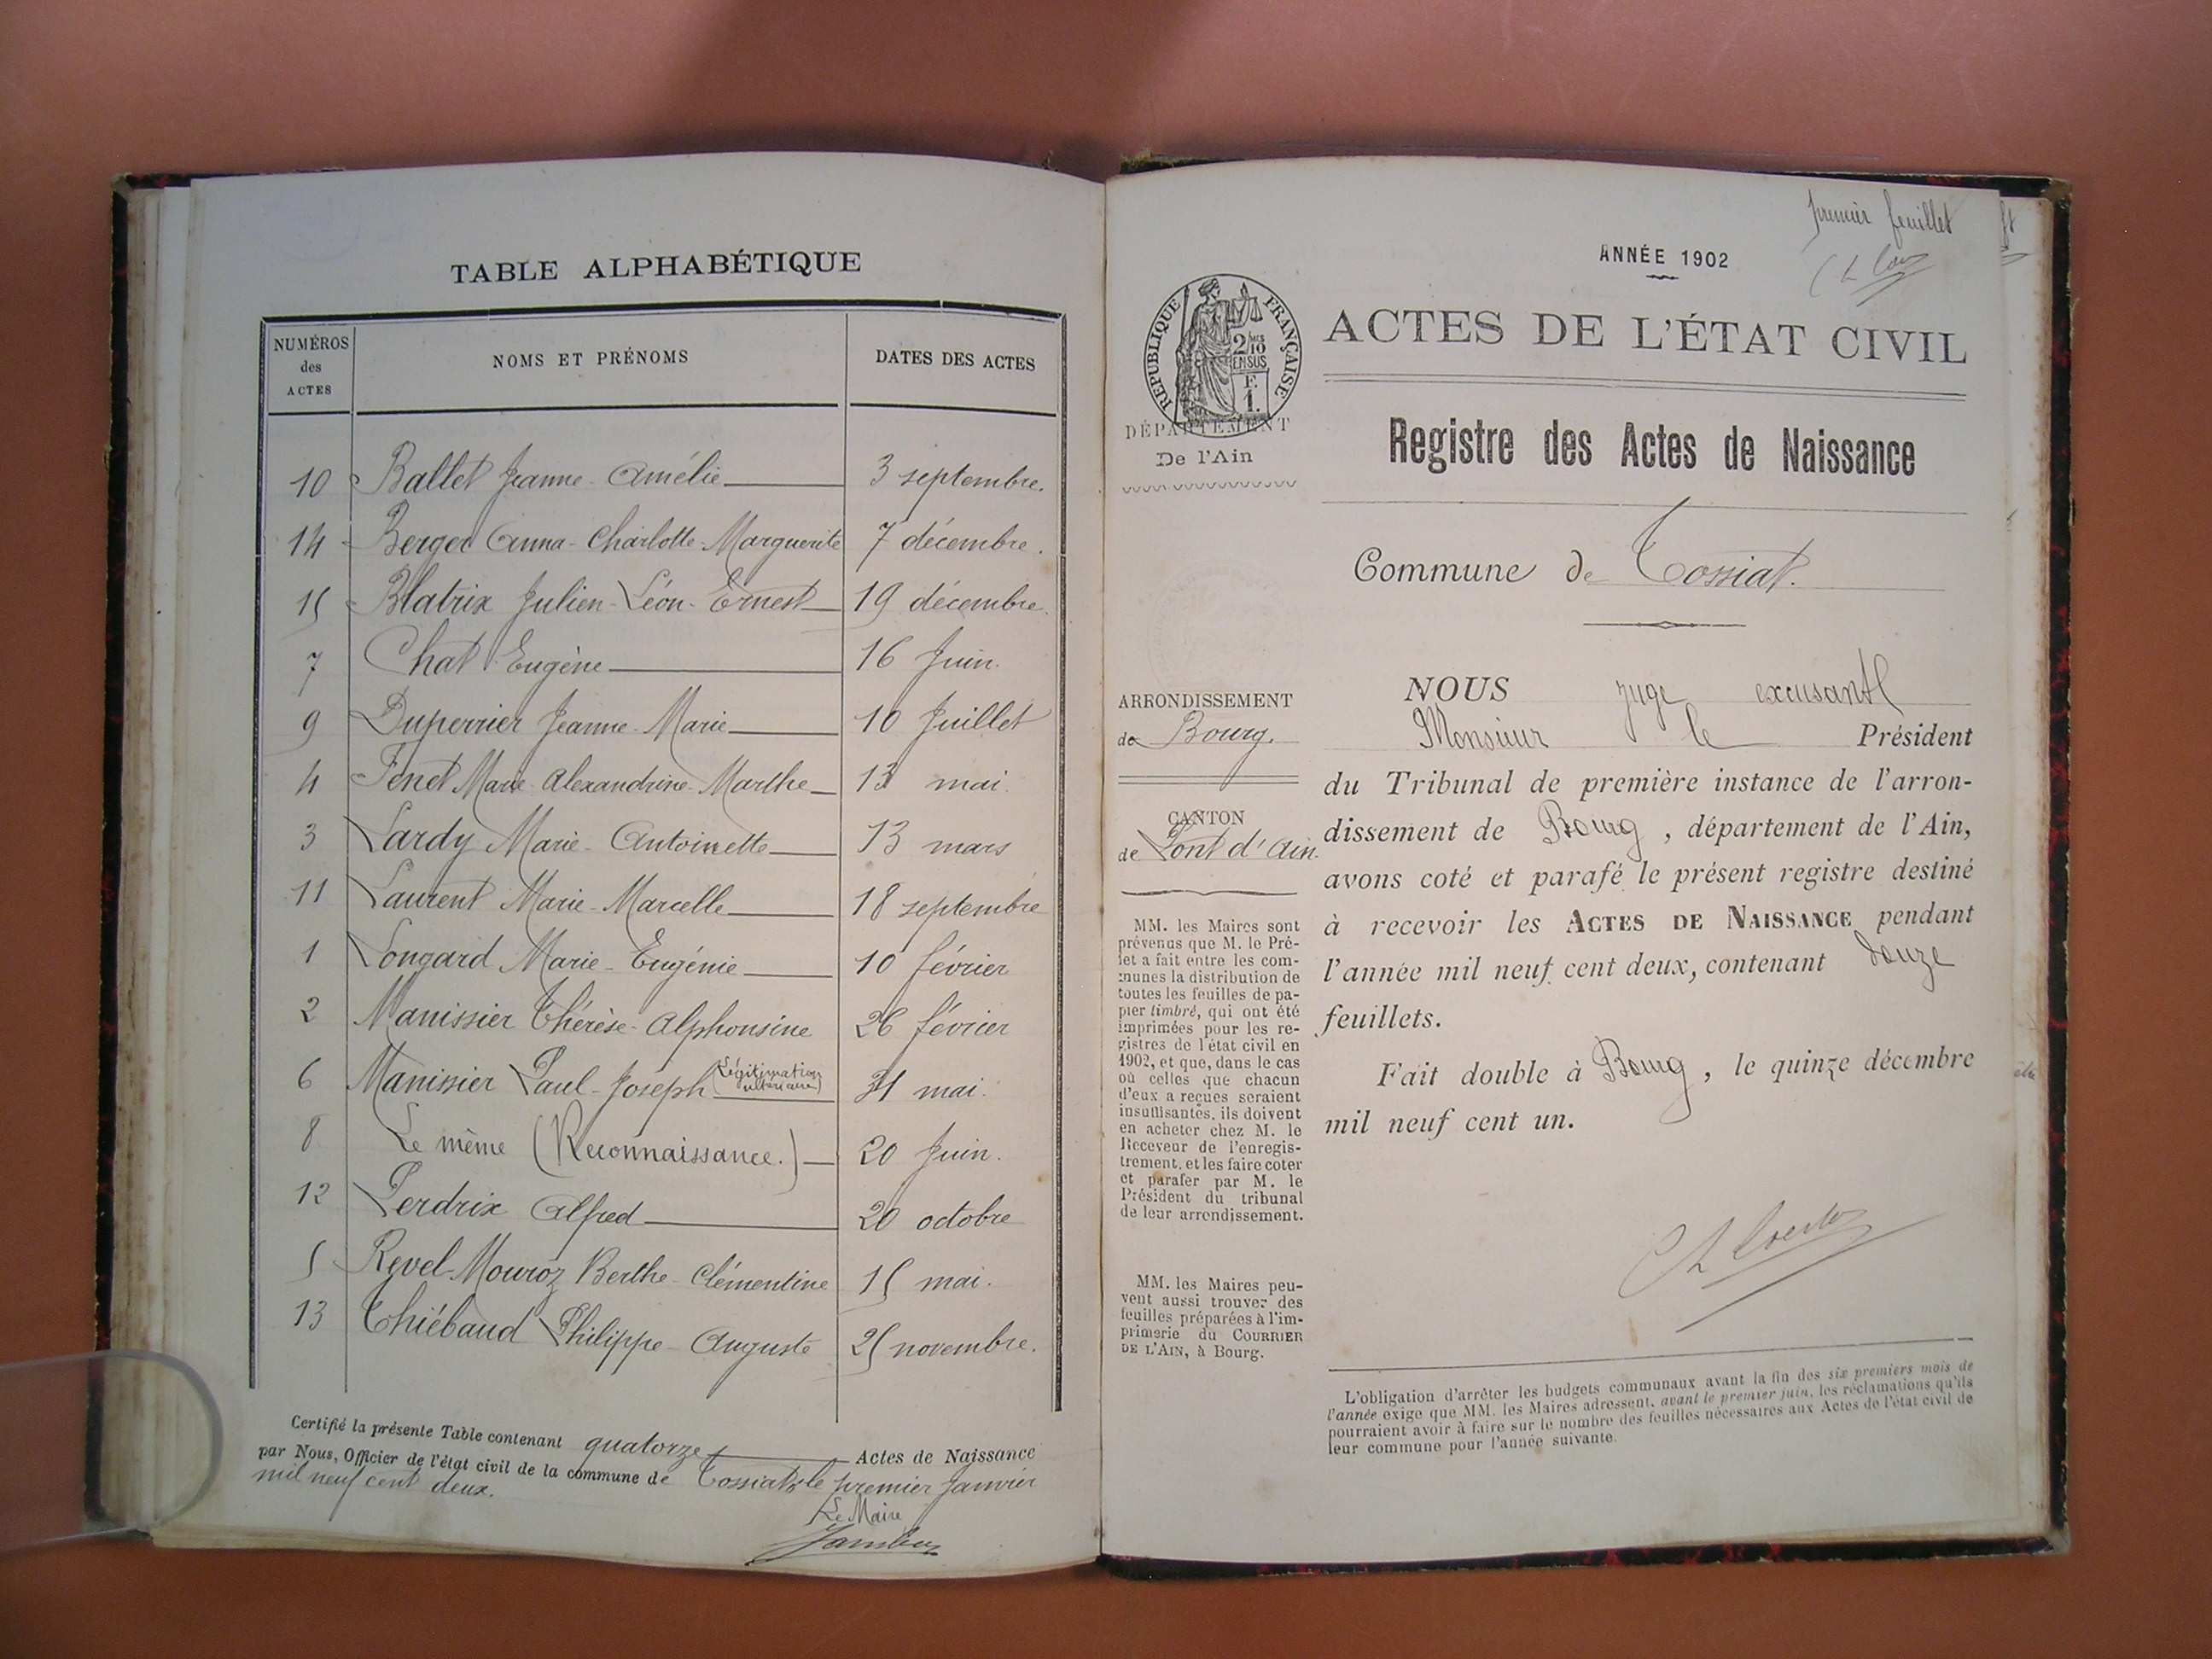 TABLE ALPHABÉTIQUE
NUMÉROS des ACTES NOMS ET PRÉNOMS DATES DES ACTES
10 Ballet Jeanne-Amélie 3 septembre.
14 Berger Anna-Charlotte-Marguerite 7 décembre.
15 Blatrix Julien-Léon-Ernest 19 décembre.
7 Chat Eugène 16 Juin.
9 Duperrier Jeanne-Marie 10 Juillet
4 Fenet Marie-Alexandrine-Marthe 13 mai.
3 Lardy Marie-Antoinette 13 mars
11 Laurent Marie-Marcelle 18 septembre
1 Longard Marie-Eugénie 10 février
2 Manissier Thérèse-Alphonsine 26 février
6 Manissier Paul-Joseph (Légitimation ultérieure) 31 mai.
8 Le même (Reconnaissance.) 20 Juin.
12 Perdrix Alfred 20 octobre
5 Revel-Mouroz Berthe-Clémentine 15 mai.
13 Thiébaud Philippe-Auguste 25 novembre.
Certifié la présente Table contenant quatorze Actes de Naissance
par Nous, Officier de l'état civil de la commune de Tossiat, le premier Janvier
mil neuf cent deux.
Le Maire
premier feuillet
ANNÉE 1902
RÉPUBLIQUE FRANÇAISE
2/10 EN SUS
F. 1.
ACTES DE L'ÉTAT CIVIL
DÉPARTEMENT
De l'Ain
Registre des Actes de Naissance
Commune de Tossiat.
ARRONDISSEMENT
de Bourg.
CANTON
de Pont d'Ain.
MM. les Maires sont
prévenus que M. le Pré-
fet a fait entre les com-
munes la distribution de
toutes les feuilles de pa-
pier timbré, qui ont été
imprimées pour les re-
gistres de l'état civil en
1902, et que, dans le cas
où celles que chacun
d'eux a reçues seraient
insuffisantes, ils doivent
en acheter chez M. le
Receveur de l'enregis-
trement, et les faire coter
et parafer par M. le
Président du tribunal
de leur arrondissement.
MM. les Maires peu-
vent aussi trouver des
feuilles préparées à l'im-
primerie du COURRIER
DE L'AIN, à Bourg.
NOUS juge excusant
Monsieur le Président
du Tribunal de première instance de l'arron-
dissement de Bourg, département de l'Ain,
avons coté et parafé le présent registre destiné
à recevoir les ACTES DE NAISSANCE pendant
l'année mil neuf cent deux, contenant douze
feuillets.
Fait double à Bourg, le quinze décembre
mil neuf cent un.
L'obligation d'arrêter les budgets communaux avant la fin des six premiers mois de
l'année exige que MM. les Maires adressent, avant le premier juin, les réclamations qu'ils
pourraient avoir à faire sur le nombre des feuilles nécessaires aux Actes de l'état civil de
leur commune pour l'année suivante.